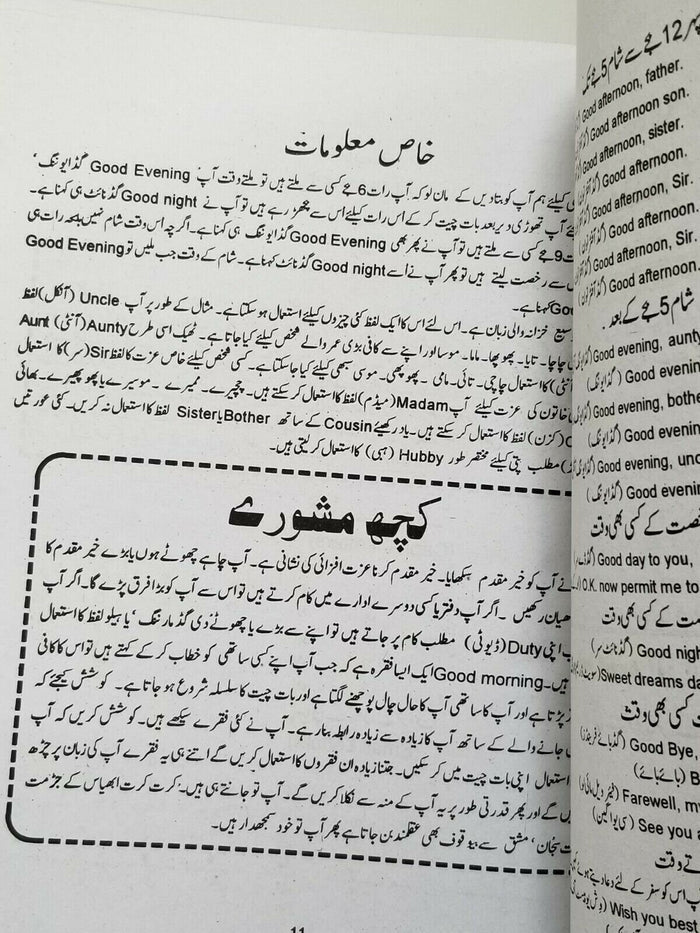 خاص معلومات
کیلئے ہم آپ کو بتادیں کے مان لو کہ آپ رات 6 بجے کسی سے ملتے ہیں تو ملتے وقت آپ Good Evening گڈایوننگ‘
کیلئے آپ تھوڑی دیر بعد بات چیت کر کے اس رات کیلئے اس سے بچھڑ رہے ہیں تو آپ نے Good night گڈنائٹ ہی کہنا ہے۔
9 بجے کسی سے ملتے ہیں تو آپ نے پھر بھی Good Evening گڈایوننگ ہی کہنا ہے۔ اگرچہ اس وقت شام نہیں بلکہ رات ہی
سے رخصت لیتے ہیں تو پھر آپ نے اُسے Good night گڈنائٹ کہنا ہے۔ شام کے وقت جب ملیں تو Good Evening
کہنا ہے۔
وسیع خزانہ والی زبان ہے۔ اس لئے اس کا ایک لفظ کئی چیزوں کیلئے استعمال ہو سکتا ہے۔ مثال کے طور پر آپ Uncle (آنکل) لفظ
چاچا۔ تایا۔ پھوپھا۔ ماما۔ موسا اور اپنے سے کافی بڑی عمر والے شخص کیلئے کیا جاتا ہے۔ ٹھیک اسی طرح Aunty (آنٹی) Aunt
(آنٹی) کا استعمال چاچی۔ تائی۔ مامی ۔ پھوپھی۔ موسی سبھی کیلئے کیا جاسکتا ہے۔ کسی شخص کیلئے خاص عزت کا لفظ Sir (سر) کا استعمال
خاتون کی عزت کیلئے آپ Madam (میڈم) لفظ کا استعمال کر سکتے ہیں۔ چچیرے۔ ممیرے ۔ موسیرے یا پھوپھیرے۔ بھائی
(کزن) لفظ کا استعمال کر سکتے ہیں۔ یاد رکھیئے Cousin کے ساتھ Bother یا Sister لفظ کا استعمال نہ کریں۔ کئی عورتیں
مطلب پتی کیلئے مختصر طور Hubby (ہبی) کا استعمال کر لیتی ہیں۔
کچھ مشورے
نے آپ کو خیر مقدم سکھایا۔ خیر مقدم کرنا عزت افزائی کی نشانی ہے۔ آپ چاہے چھوٹے ہوں یا بڑے خیر مقدم کا
دھیان رکھیں ۔ اگر آپ دفتر یا کسی دوسرے ادارے میں کام کرتے ہیں تو اس سے آپ کو بڑا فرق پڑے گا۔ اگر آپ
اپنی Duty (ڈیوٹی) مطلب کام پر جاتے ہیں تو اپنے سے بڑے یا چھوٹے دی گڈ مارننگ ‘ یا ہیلو لفظ کا استعمال
ہیں۔ Good morning ایک ایسا فقرہ ہے کہ جب آپ اپنے کسی ساتھی کو خطاب کر کے کہتے ہیں تو اس کا کافی
پڑتا ہے اور آپ کا ساتھی آپ کا حال چال پوچھنے لگتا ہے اور بات چیت کا سلسلہ شروع ہو جاتا ہے۔ کوشش کیجئے کہ
جاننے والے کے ساتھ آپ کا زیادہ سے زیادہ رابطہ بنا رہے۔ آپ نے کئی فقرے سیکھے ہیں۔ کوشش کریں کہ آپ
استعمال اپنی بات چیت میں کر سکیں۔ جتنا زیادہ ان فقروں کا استعمال کریں گے اتنے ہی یہ فقرے آپ کی زبان پر چڑھ
گے اور پھر قدرتی طور پر یہ آپ کے منہ سے نکلا کریں گے۔ آپ تو جانتے ہی ہیں۔ کرت کرت ابھیاس کے جڑمت
سنجان‘ مشق سے بیوقوف بھی عقلمند بن جاتا ہے پھر آپ تو خود سمجھدار ہیں۔
11
12 بجے سے شام 5 بجے تک
Good afternoon, father.
Good afternoon son.
Good afternoon, sister.
Good afternoon.
Good afternoon, Sir.
Good afternoon.
Good afternoon, Sir.
Good afternoon.
شام 5 بجے کے بعد۔
Good evening, aunty
Good evenin (گڈایوننگ)
Good evening, bothe
Good evenin (گڈایوننگ)
Good evening, unc
Good eveni (گڈایوننگ)
کے کسی بھی وقت
Good day to you,
O.K. now permit me to
کے کسی بھی وقت
Good nigh (گڈنائٹ سر)
Sweet dreams da
کسی بھی وقت
Good Bye, (گڈبائے فرینڈز)
B (بائے بائے)
Farewell, my
See you a (سی یو اگین)
وقت
آپ اس کو سفر کے لئے دعا دیتے ہوئے
Wish you best